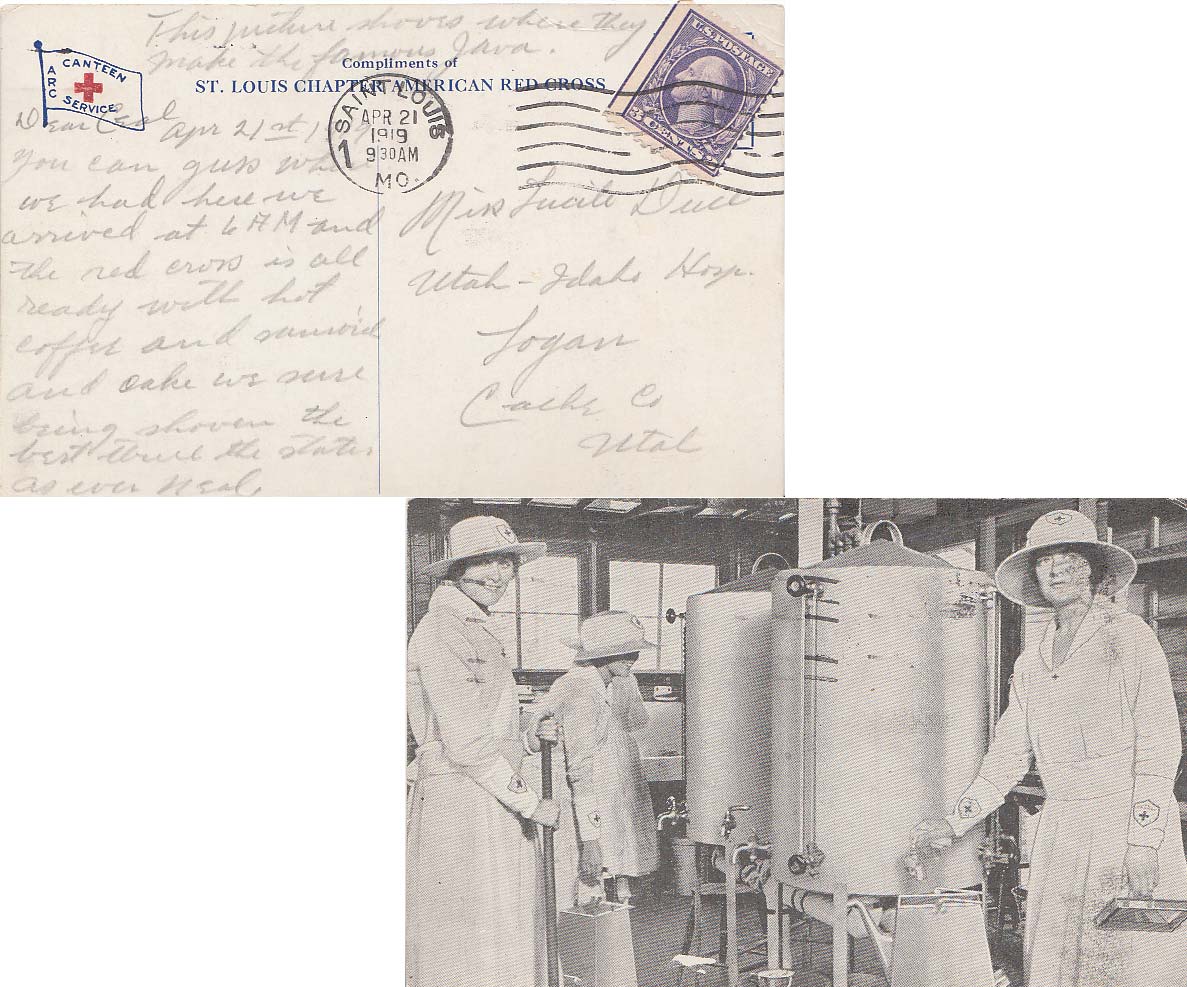 This picture shoves where they
make the famous Java.
ARC
CANTEEN
SERVICE
Compliments of
ST. LOUIS CHAPTER AMERICAN RED CROSS
U.S. POSTAGE
3 CENTS 3
SAINT LOUIS
APR 21
1919
930AM
1
MO.
Dear Apr 21st
you can guss
we had here we
arrived at 6 AM and
the red cross is all
ready with hot
coffee and sanwid
and cake we sure
being shoven the
best the states
as ever Neal
Miss Lucile
Utah-Idaho Hosp.
Logan
Cache Co
Utah